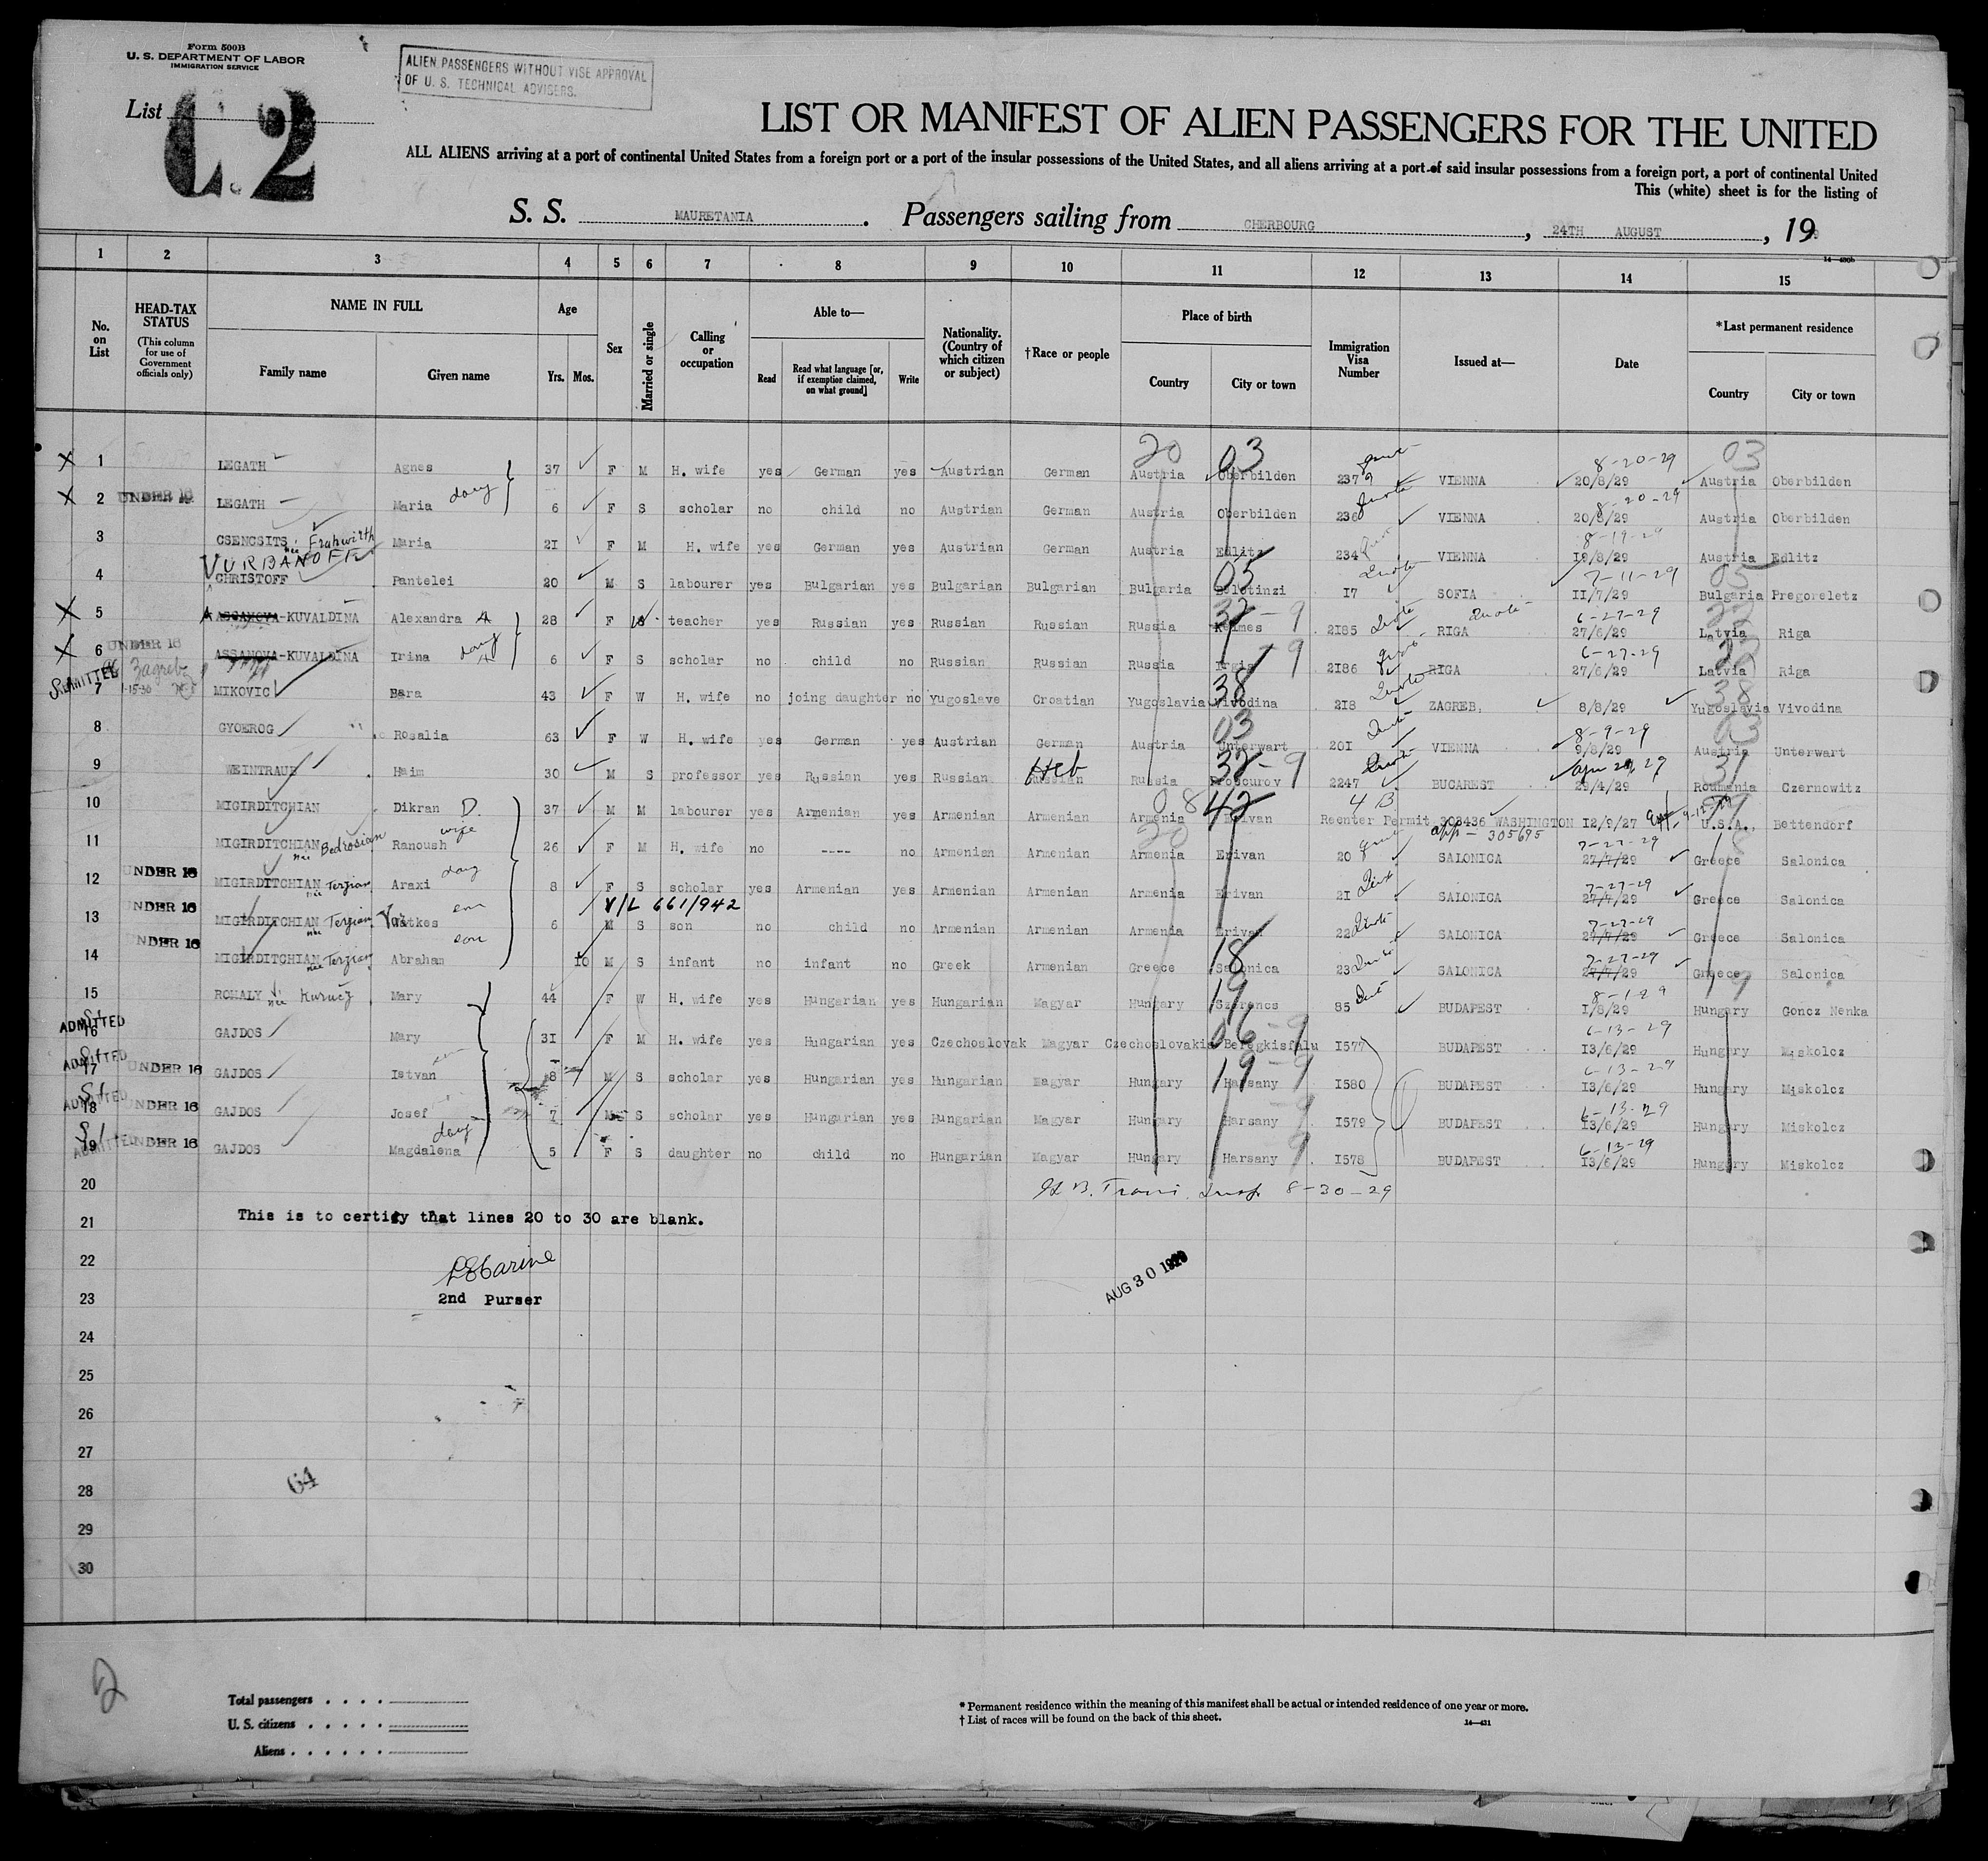 Form 500B
U. S. DEPARTMENT OF LABOR
IMMIGRATION SERVICE
ALIEN PASSENGERS WITHOUT VISE APPROVAL
OF U. S. TECHNICAL ADVISERS.
List 2
LIST OR MANIFEST OF ALIEN PASSENGERS FOR THE UNITED
ALL ALIENS arriving at a port of continental United States from a foreign port or a port of the insular possessions of the United States, and all aliens arriving at a port of said insular possessions from a foreign port, a port of continental United
This (white) sheet is for the listing of
S. S. MAURETANIA. Passengers sailing from CHERBOURG, 24TH AUGUST, 19
14—430b
1 2 3 4 5 6 7 8 9 10 11 12 13 14 15
No. on List
HEAD-TAX STATUS
(This column for use of Government officials only)
NAME IN FULL
Family name
Given name
Age
Yrs. Mos.
Sex
Married or single
Calling or occupation
Able to—
Read
Read what language [or, if exemption claimed, on what ground]
Write
Nationality. (Country of which citizen or subject)
†Race or people
Place of birth
Country
City or town
Immigration Visa Number
Issued at—
Date
*Last permanent residence
Country
City or town
20 03 8-20-29 03
X 1 LEGATH Agnes 37 F M H. wife yes German yes Austrian German Austria Oberbilden 237 VIENNA 20/8/29 Austria Oberbilden
8-20-29
X 2 UNDER 16 LEGATH Maria daug 6 F S scholar no child no Austrian German Austria Oberbilden 236 VIENNA 20/8/29 Austria Oberbilden
8-19-29
3 CSENCSITS nee Frahwirth Maria 21 F M H. wife yes German yes Austrian German Austria Edlitz 234 VIENNA 19/8/29 Austria Edlitz
VURBANOFF 05 Quota 7-11-29 05
4 CHRISTOFF Pantelei 20 M S labourer yes Bulgarian yes Bulgarian Bulgarian Bulgaria Beletinzi 17 SOFIA 11/7/29 Bulgaria Pregoreletz
32-9 Quota Quota 6-27-29
X 5 ASSANOVA-KUVALDINA Alexandra A 28 F teacher yes Russian yes Russian Russian Russia 2185 RIGA 27/6/29 Latvia Riga
UNDER 16 9 6-27-29
X 6 ASSANOVA-KUVALDINA Irina daug 6 F S scholar no child no Russian Russian Russia Irgis 2186 RIGA 27/6/29 Latvia Riga
ADMITTED Zagreb 1-15-30 38 Quota 38
7 MIKOVIC Bara 43 F W H. wife no joing daughter no Yugoslave Croatian Yugoslavia Vivodina 218 ZAGREB, 8/8/29 Yugoslavia Vivodina
03 8-9-29 03
8 GYOEROG Rosalia 63 F W H. wife yes German yes Austrian German Austria Unterwart 201 VIENNA 9/8/29 Austria Unterwart
Heb 32-9 31
9 WEINTRAUB Haim 30 M S professor yes Russian yes Russian Russian Russia Proscurov 2247 BUCAREST 29/4/29 Roumania Czernowitz
08 42 4 B 99
10 MIGIRDITCHIAN Dikran D. 37 M M labourer yes Armenian yes Armenian Armenian Armenia Erivan Reenter Permit 308436 WASHINGTON 12/9/27 U.S.A., Bettendorf
20 app - 305695 7-27-29
11 MIGIRDITCHIAN nee Bedrosian Ranoush wife 26 F M H. wife no ---- no Armenian Armenian Armenia Erivan 20 SALONICA 27/7/29 Greece Salonica
UNDER 16 7-27-29
12 MIGIRDITCHIAN nee Terjian Araxi daug 8 F S scholar yes Armenian yes Armenian Armenian Armenia Erivan 21 SALONICA 27/7/29 Greece Salonica
UNDER 16 V/L 661/942 7-27-29
13 MIGIRDITCHIAN nee Terjian Vatkes son 6 M S son no child no Armenian Armenian Armenia Erivan 22 Quota SALONICA 27/7/29 Greece Salonica
UNDER 16 son 18 7-27-29
14 MIGIRDITCHIAN nee Terjian Abraham 10 M S infant no infant no Greek Armenian Greece Salonica 23 SALONICA 27/7/29 Greece Salonica
19 8-1-29 19
15 ROHALY nee Kurucz Mary 44 F W H. wife yes Hungarian yes Hungarian Magyar Hungary Szerencs 85 BUDAPEST 1/8/29 Hungary Goncz Nenka
ADMITTED 06-9 6-13-29
16 GAJDOS Mary 31 F M H. wife yes Hungarian yes Czechoslovak Magyar Czechoslovakia Beregkisfalu 1577 BUDAPEST 13/6/29 Hungary Miskolcz
ADMITTED 19-9 6-13-29
17 UNDER 16 GAJDOS Istvan 8 M S scholar yes Hungarian yes Hungarian Magyar Hungary Harsany 1580 BUDAPEST 13/6/29 Hungary Miskolcz
ADMITTED 9 6-13-29
18 UNDER 16 GAJDOS Josef 7 M S scholar yes Hungarian yes Hungarian Magyar Hungary Harsany 1579 BUDAPEST 13/6/29 Hungary Miskolcz
ADMITTED 9 6-13-29
19 UNDER 16 GAJDOS Magdalena daug 5 F S daughter no child no Hungarian Magyar Hungary Harsany 1578 BUDAPEST 13/6/29 Hungary Miskolcz
20 Insp 8-30-29
21 This is to certify that lines 20 to 30 are blank.
22
AUG 30 1929
23 2nd Purser
24
25
26
27
28 64
29
30
2
Total passengers . . . .
U. S. citizens . . . . .
Aliens . . . . . .
* Permanent residence within the meaning of this manifest shall be actual or intended residence of one year or more.
† List of races will be found on the back of this sheet.
14—431